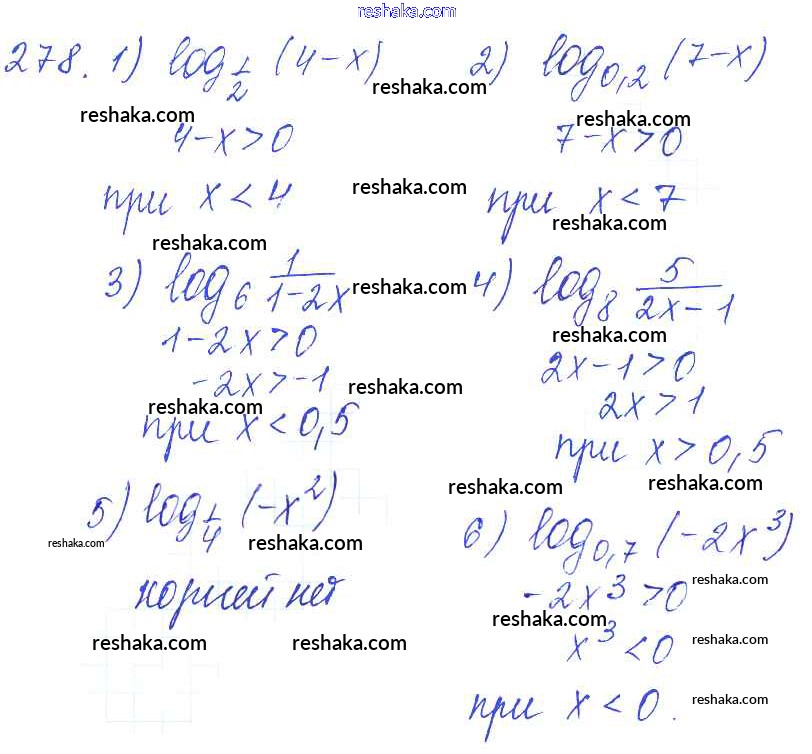 reshaka.com
278. 1) log_{1/2} (4-x)
reshaka.com
4-x>0
reshaka.com
при x<4
reshaka.com
reshaka.com
2) log_{0,2} (7-x)
reshaka.com
7-x>0
при x<7
reshaka.com
3) log_6 1/(1-2x)
reshaka.com
1-2x>0
-2x>-1
reshaka.com
reshaka.com
при x<0,5
4) log_8 5/(2x-1)
reshaka.com
2x-1>0
2x>1
при x>0,5
reshaka.com
reshaka.com
5) log_{1/4} (-x^2)
reshaka.com
reshaka.com
корней нет
reshaka.com
reshaka.com
6) log_{0,7} (-2x^3)
reshaka.com
-2x^3>0
reshaka.com
x^3<0
reshaka.com
при x<0.
reshaka.com